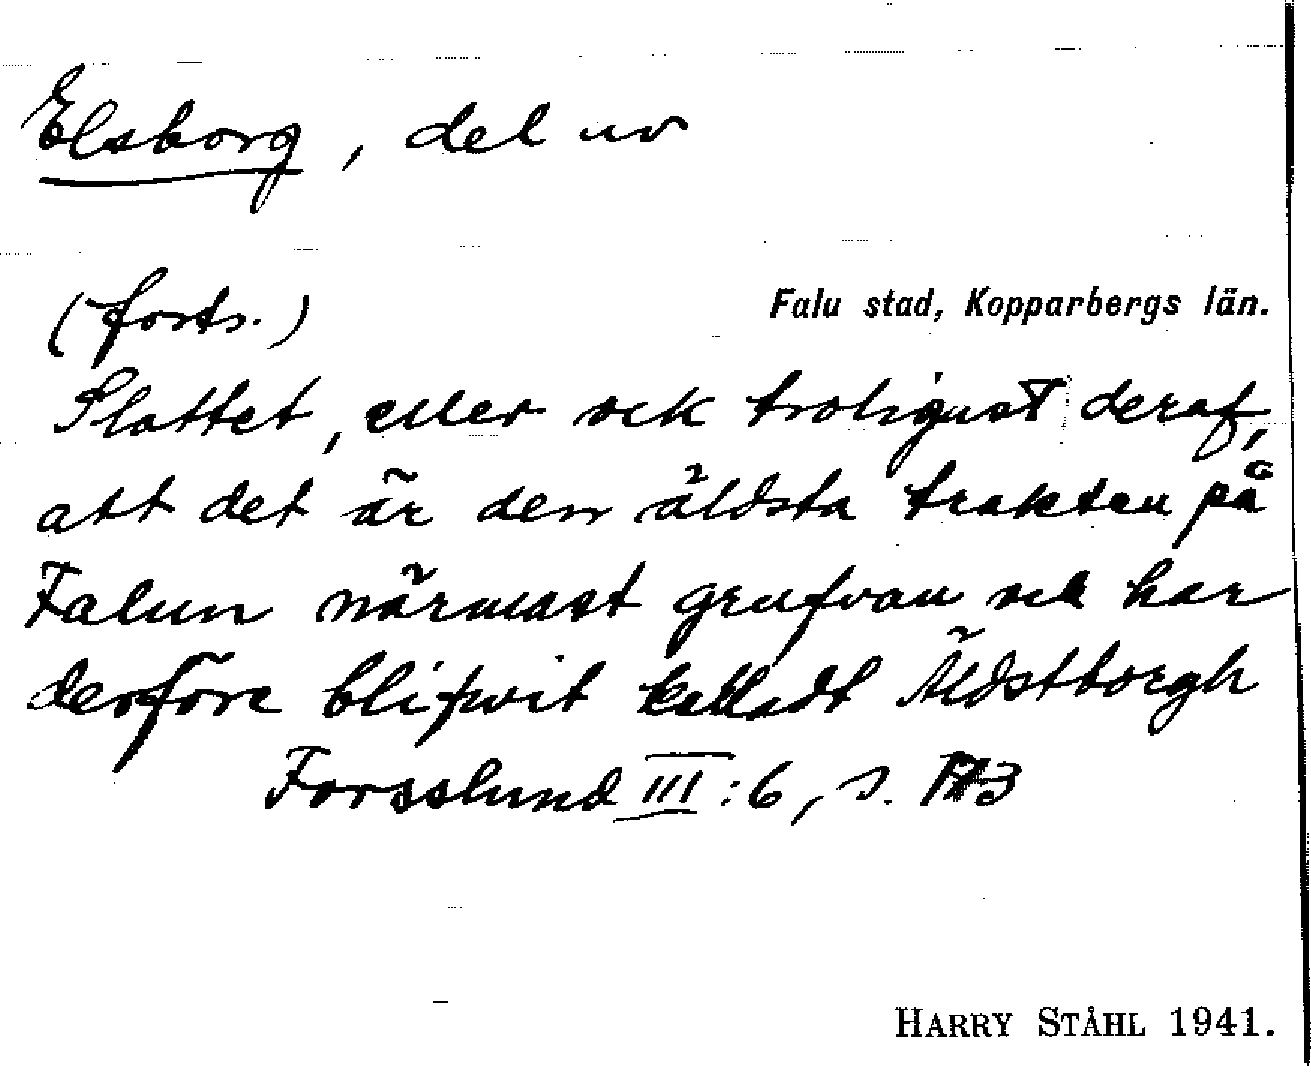 Elsborg, del av
(forts.)
Falu stad, Kopparbergs län.
Slottet, eller ock troligast deraf,
att det är den äldsta trakten på
Falun närmast grufvan och har
derföre blifwit kalladt Äldstborgh
Forsslund III:6, s. 173
HARRY STÅHL 1941.